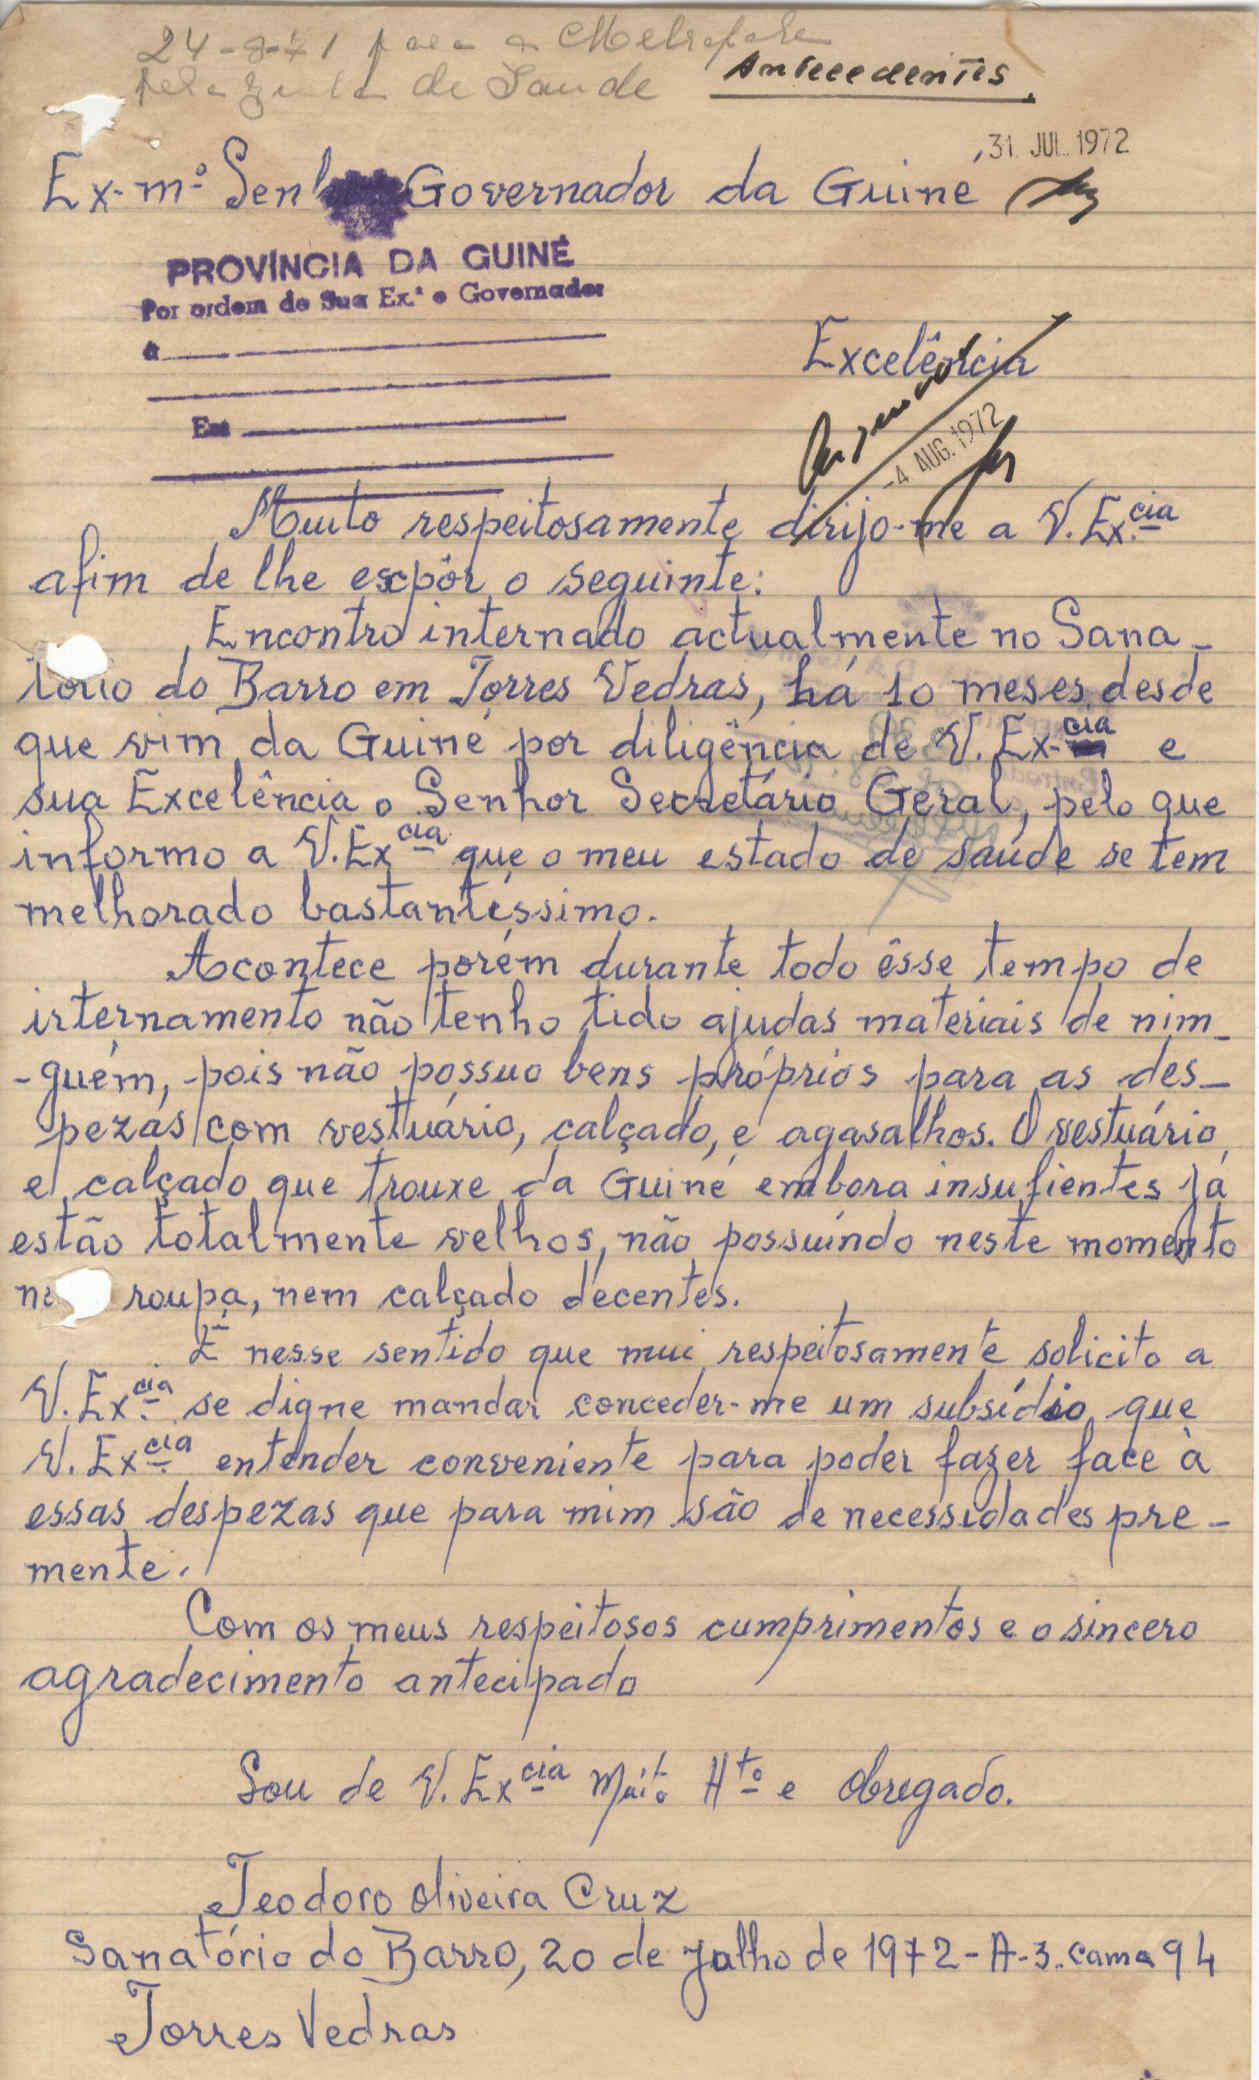 24-8-71 para a Metropole
pela Junta de Saude
Antecedentes
31 JUL 1972
Ex-mº Sen Governador da Guiné
PROVÍNCIA DA GUINÉ
Por ordem de Sua Ex.ª o Governador
à
Em
Excelência
-4 AUG. 1972
Muito respeitosamente dirijo-me a V. Ex.cia
afim de lhe escpôr o seguinte:
Encontro internado actualmente no Sana-
tório do Barro em Torres Vedras, há 10 meses desde
que vim da Guiné por diligência de V. Ex-cia e
sua Excelência o Senhor Secretário Geral, pelo que
informo a V. Excia que o meu estado de saúde se tem
melhorado bastantéssimo.
Acontece porém durante todo êsse tempo de
internamento não tenho tido ajudas materiais de nim-
-guém, pois não possuo bens próprios para as des-
pezas com vestuário, calçado, e agasalhos. O vestuário
e calçado que trouxe da Guiné embora insufientes já
estão totalmente velhos, não possuíndo neste momento
ne roupa, nem calçado decentes.
É nesse sentido que mui respeitosamente solicito a
V. Excia se digne mandar conceder-me um subsídio que
V. Excia entender conveniente para poder fazer face à
essas despezas que para mim são de necessidades pre-
mente.
Com os meus respeitosos cumprimentos e o sincero
agradecimento antecipado
Sou de V. Excia Muito Hto e obregado.
Teodoro Oliveira Cruz
Sanatório do Barro, 20 de Julho de 1972-A-3. cama 94
Torres Vedras